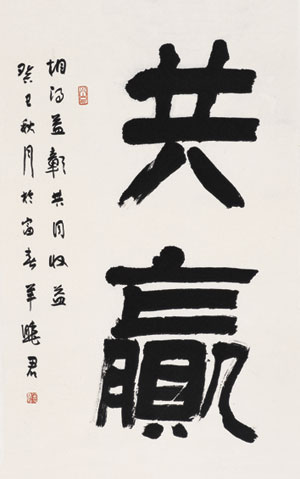 共贏
相得益彰共同收益
癸巳秋月於富春羊曉君